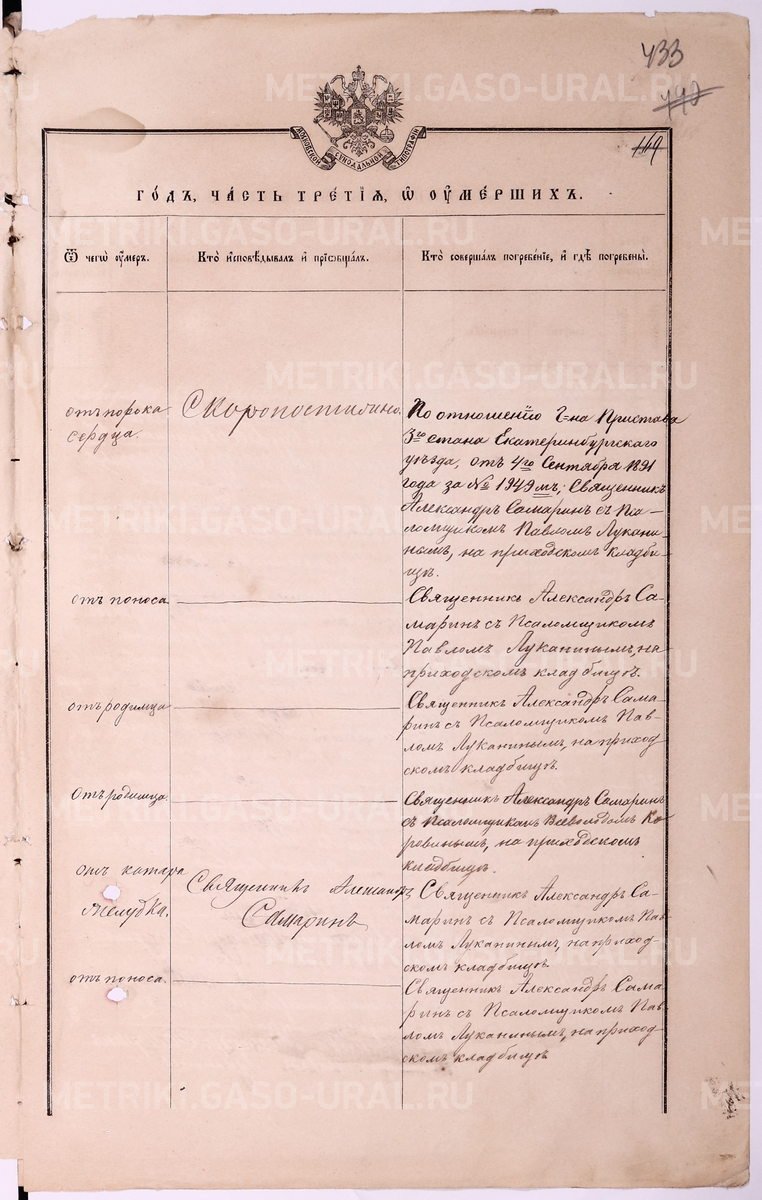 433
442
149
МОСКОВСКОЙ СѴНОДАЛЬНОЙ ТИПОГРАФІИ
ГОДЪ, ЧАСТЬ ТРЕТІЯ, Ѿ ОУМЕРШИХЪ.
Ѿ чегѡ оумеръ.
Кто исповѣдывалъ и пріобщалъ.
Кто совершалъ погребеніе, и гдѣ погребены.
отъ порока
сердца.
Скоропостижно.
По отношенію Г-на Пристава
3го стана Екатеринбургскаго
уѣзда, отъ 4го Сентября 1891
года за № 1949мъ; Священникъ
Александръ Самаринъ съ Пса-
ломщикомъ Павломъ Лукани-
нымъ, на приходскомъ кладби-
щѣ.
отъ поноса
Священникъ Александръ Са-
маринъ съ Псаломщикомъ
Павломъ Луканинымъ, на
приходскомъ кладбищѣ.
отъ родимца
Священникъ Александръ Сама-
ринъ съ Псаломщикомъ Пав-
ломъ Луканинымъ, на приход
скомъ кладбищѣ.
отъ родимца.
Священникъ Александръ Самаринъ
съ Псаломщикомъ Всеволодомъ Ко-
ровинымъ, на приходскомъ
кладбищѣ.
отъ катара
желудка.
Священникъ Александръ
Самаринъ
Священникъ Александръ Са-
маринъ съ Псаломщикомъ Пав-
ломъ Луканинымъ, на приход-
скомъ кладбищѣ.
отъ поноса.
Священникъ Александръ Сама-
ринъ съ Псаломщикомъ Пав-
ломъ Луканинымъ, на приход
скомъ кладбищѣ
METRIKI.GASO-URAL.RU